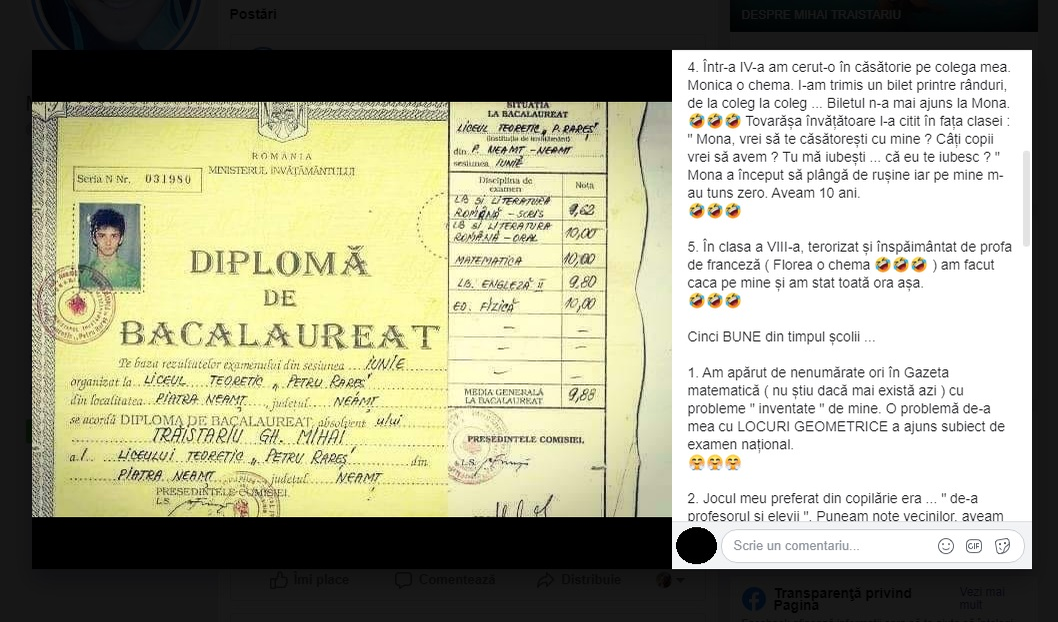 Postări
DESPRE MIHAI TRAISTARIU
ROMÂNIA
MINISTERUL ÎNVĂŢĂMÂNTULUI
Seria N Nr. 031980
DIPLOMĂ
DE
BACALAUREAT
Pe baza rezultatelor examenului din sesiunea IUNIE
organizat la LICEUL TEORETIC „PETRU RAREŞ"
din localitatea PIATRA NEAMŢ, judeţul NEAMŢ
se acordă DIPLOMA DE BACALAUREAT, absolvent ului
TRAISTARIU GH. MIHAI
al LICEULUI TEORETIC „PETRU RAREŞ" din
PIATRA NEAMŢ judeţul NEAMŢ
PREŞEDINTELE COMISIEI,
L.S.
SITUAŢIA
LA BACALAUREAT
LICEUL TEORETIC „P. RAREŞ"
(instituţia de învăţământ)
din P. NEAMŢ - NEAMŢ
sesiunea IUNIE
Disciplina de examen Nota
LB SI LITERATURA
ROMÂNĂ - SCRIS 9,62
LB SI LITERATURA
ROMÂNĂ - ORAL 10,00
MATEMATICA 10,00
LB. ENGLEZĂ II 9,80
ED. FIZICĂ 10,00
MEDIA GENERALĂ
LA BACALAUREAT 9,88
PREŞEDINTELE COMISIEI,
L.S.
4. Într-a IV-a am cerut-o în căsătorie pe colega mea.
Monica o chema. I-am trimis un bilet printre rânduri,
de la coleg la coleg ... Biletul n-a mai ajuns la Mona.
🤣🤣🤣 Tovarășa învățătoare l-a citit în fața clasei :
" Mona, vrei să te căsătorești cu mine ? Câți copii
vrei să avem ? Tu mă iubești ... că eu te iubesc ? "
Mona a început să plângă de rușine iar pe mine m-
au tuns zero. Aveam 10 ani.
🤣🤣🤣
5. În clasa a VIII-a, terorizat și înspăimântat de profa
de franceză ( Florea o chema 🤣🤣🤣 ) am facut
caca pe mine și am stat toată ora așa.
🤣🤣🤣
Cinci BUNE din timpul școlii ...
1. Am apărut de nenumărate ori în Gazeta
matematică ( nu știu dacă mai există azi ) cu
probleme " inventate " de mine. O problemă de-a
mea cu LOCURI GEOMETRICE a ajuns subiect de
examen național.
2. Jocul meu preferat din copilărie era ... " de-a
profesorul și elevii ". Puneam note vecinilor, aveam
Scrie un comentariu...
GIF
Îmi place
Comentează
Distribuie
Transparență privind
Pagina
Vezi mai
mult